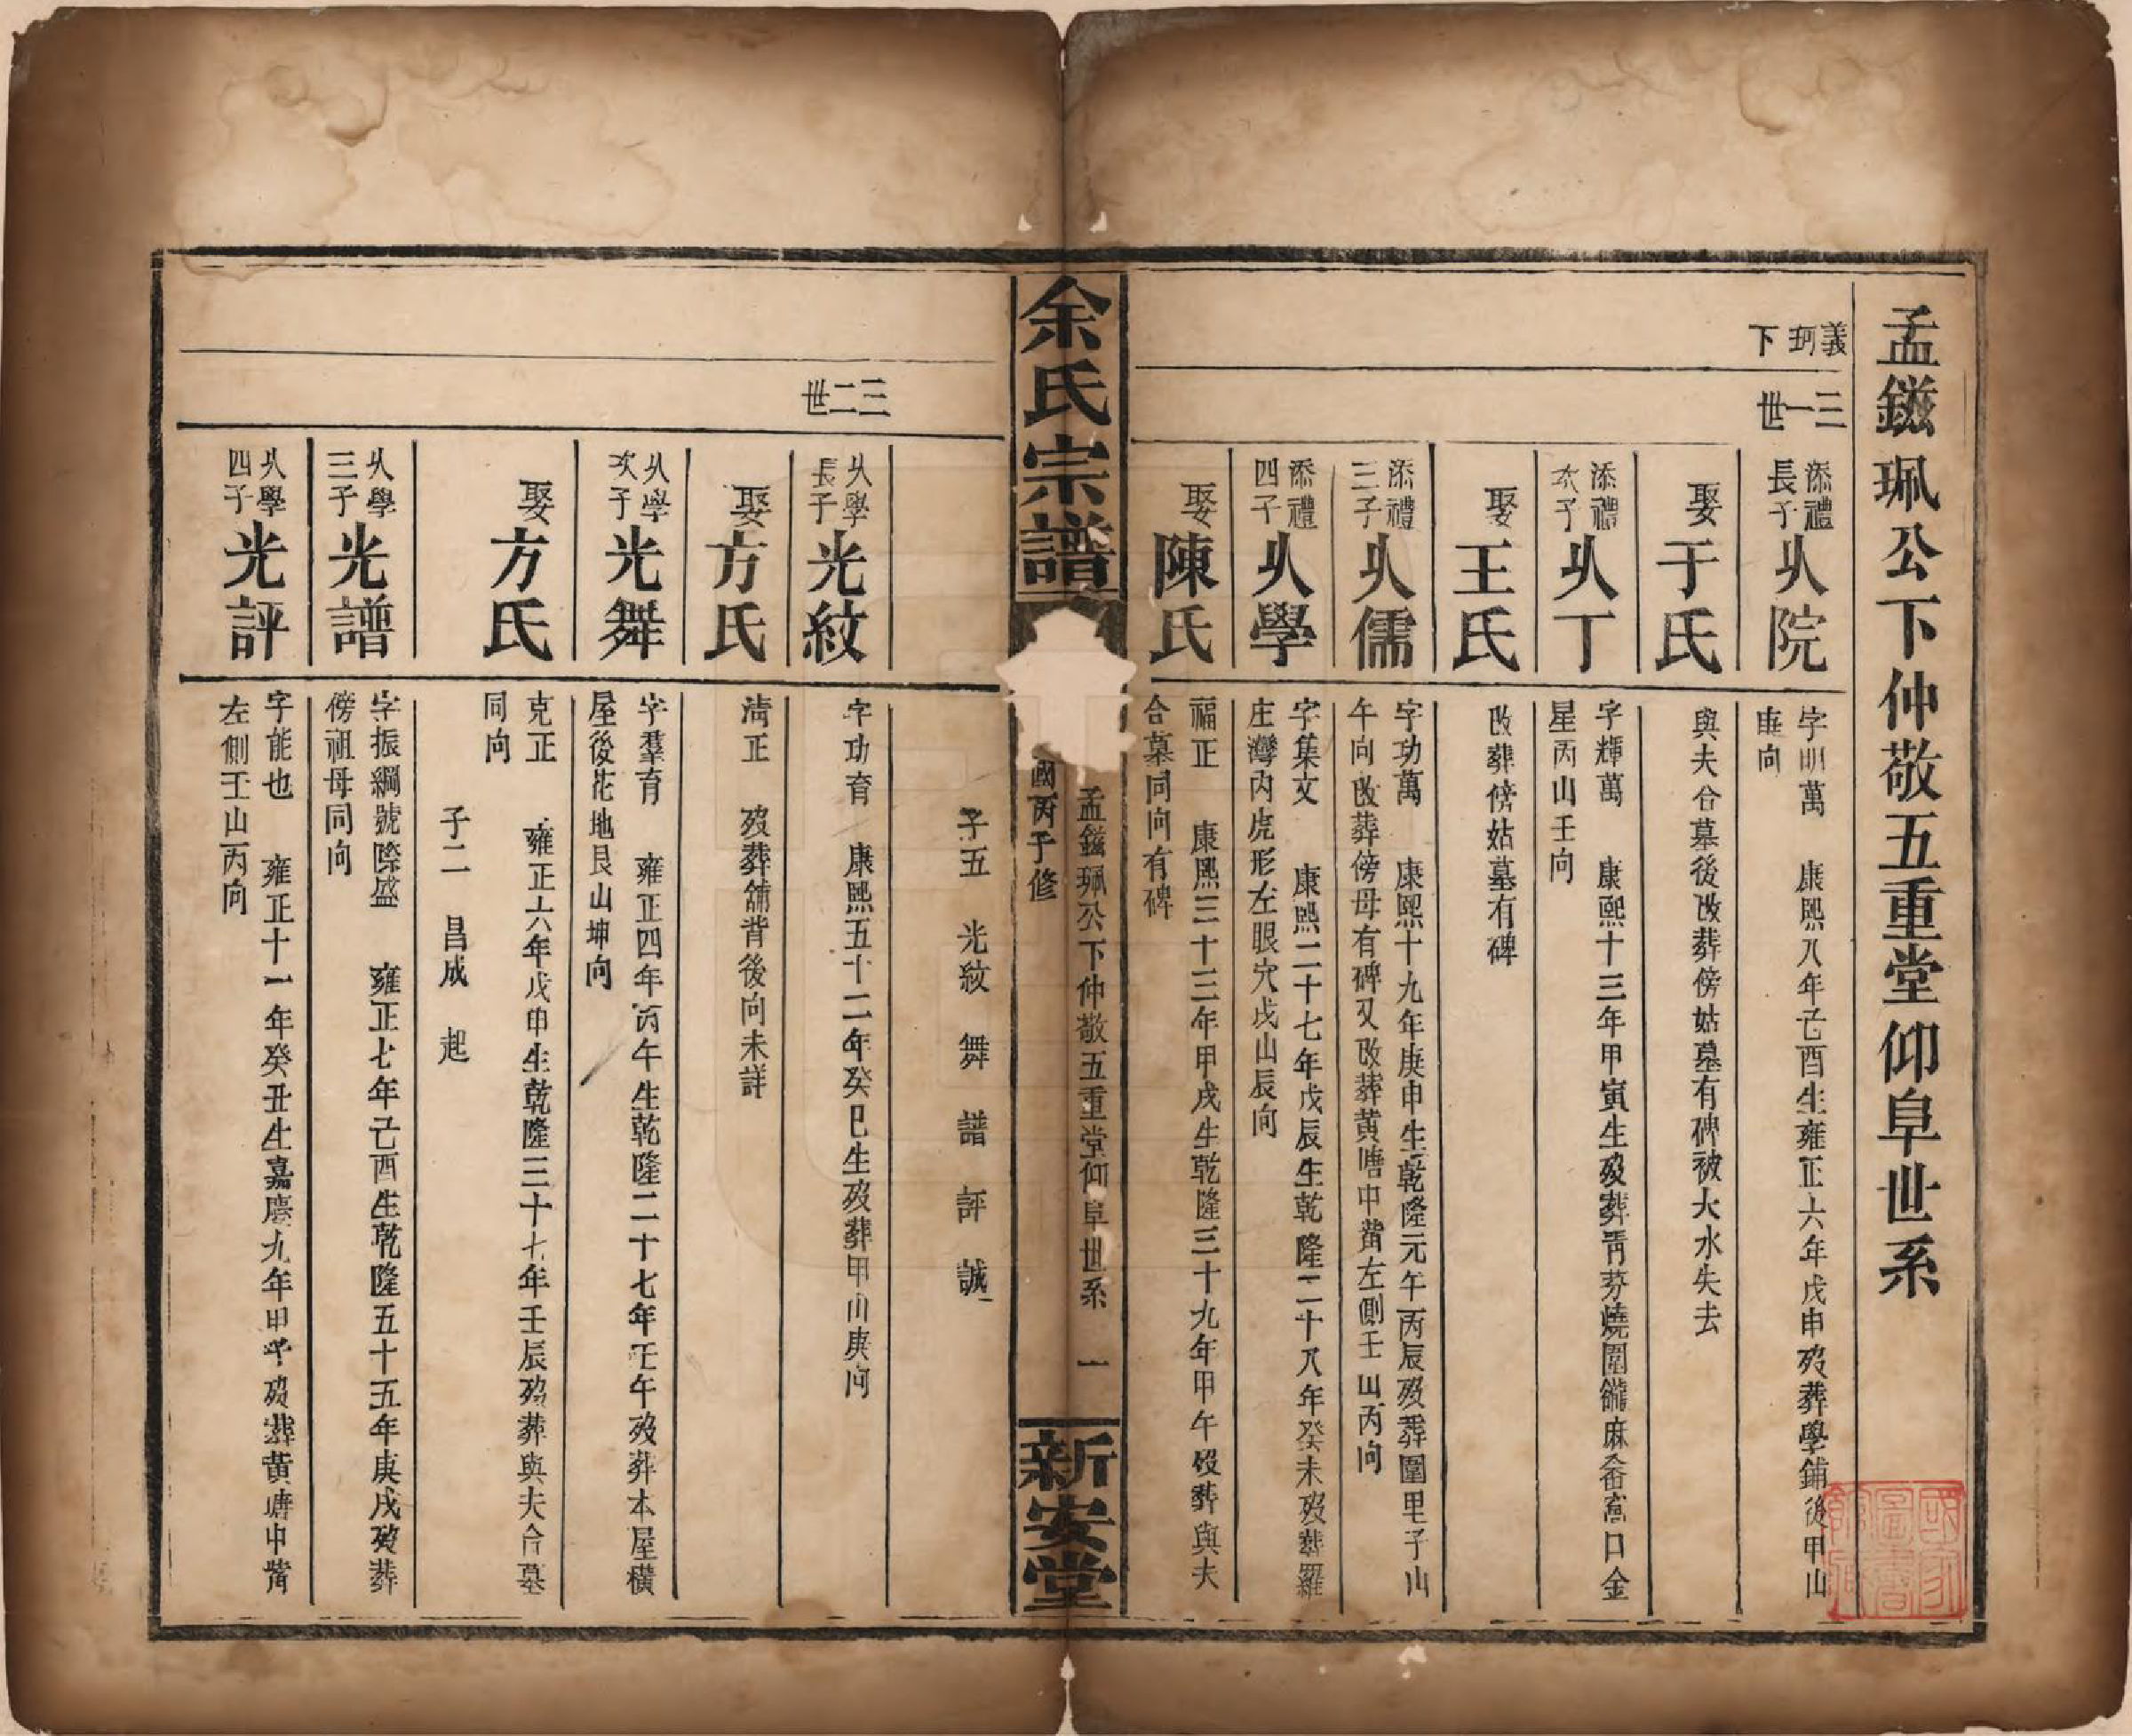 孟鎡珮公下仲敬五重堂仰阜世系
義珂下
三一世
添禮長子 㸚院
字明萬 康熙八年己酉生雍正六年戊申歿葬學鋪後甲山
庚向
娶于氏
與夫合墓後改葬傍姑墓有碑被大水失去
添禮次子 丁
字輝萬 康熙十三年甲寅生歿葬靑芬燒圍麻畬窩口金
星丙山壬向
娶王氏
改葬傍姑墓有碑
添禮三子 儒
字功萬 康熙十九年庚申生乾隆元年丙辰歿葬圍里子山
午向改葬傍母有碑又改葬黄塘中嵛左側壬山丙向
添禮四子 學
字集文 康熙二十七年戊辰生乾隆二十八年癸未歿葬羅
庄灣内虎形左眼穴戌山辰向
娶陳氏
福正 康熙三十三年甲戌生乾隆三十九年甲午歿葬與夫
合墓同向有碑
余氏宗譜
孟鎡珮公下仲敬五重堂仰阜世系 一
國丙子修
新安堂
子五 光紋 舞 譜 評 誠
三二世
學長子 光紋
字功育 康熙五十二年癸巳生歿葬甲山庚向
娶方氏
淸正 歿葬舖背後向未詳
學次子 光舞
字羣育 雍正四年丙午生乾隆二十七年壬午歿葬本屋橫
屋後花地艮山坤向
娶方氏
克正 雍正六年戊申生乾隆三十七年壬辰歿葬與夫合墓
同向
子二 昌成 起
學三子 光譜
字振綱號際盛 雍正七年己酉生乾隆五十五年庚戌歿葬
傍祖母同向
學四子 光評
字能也 雍正十一年癸丑生嘉慶九年甲子歿葬黄塘中嵛
左側壬山丙向